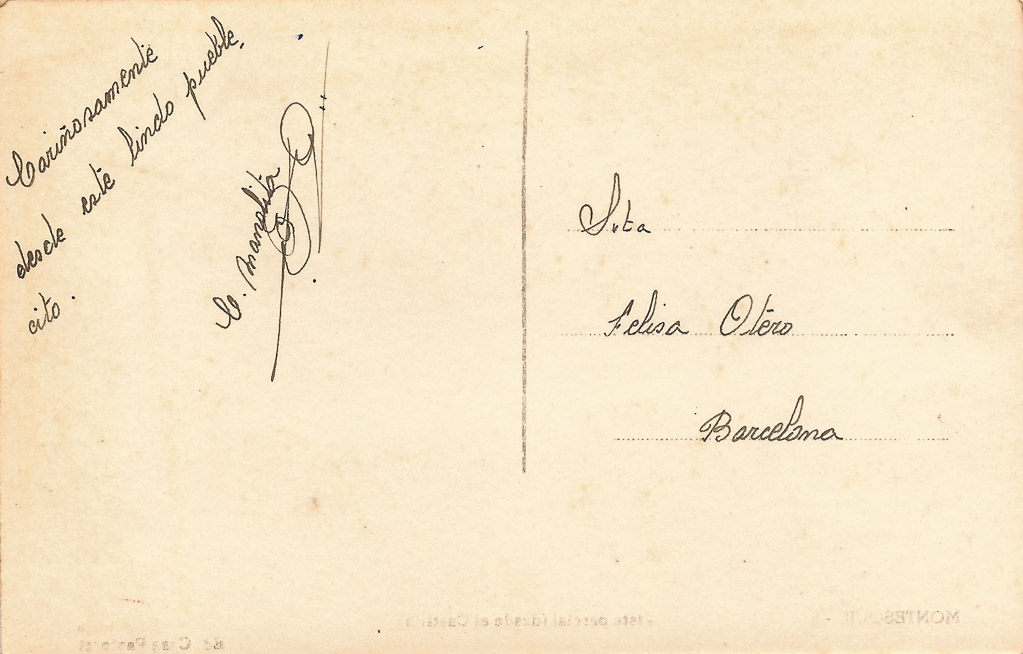 Cariñosamente
desde este lindo pueble-
cito.
C. Manolita
Srta
Felisa Otero
Barcelona
Vista parcial (desde el Castillo)